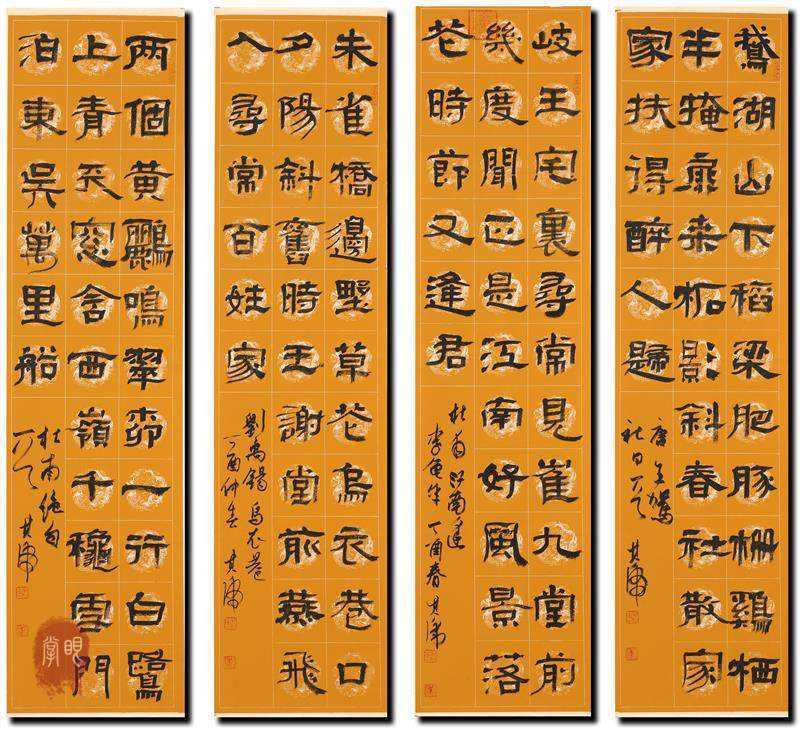 鵝湖山下稻梁肥豚栅鷄栖
半掩扉桑柘影斜春社散家
家扶得醉人歸
唐王駕
社日丁酉
岐王宅裏尋常見崔九堂前
幾度聞正是江南好風景落
花時節又逢君
杜甫江南逢
李龜年丁酉春
朱雀橋邊野草花烏衣巷口
夕陽斜舊時王謝堂前燕飛
入尋常百姓家
劉禹錫烏衣巷
丁酉仲春
两個黄鸝鳴翠柳一行白鷺
上青天窗含西嶺千穐雪門
泊東吴萬里船
杜甫絶句
丁酉
掌眼